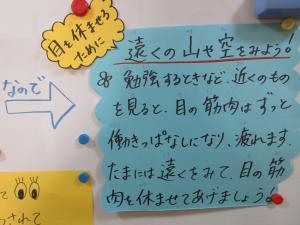 目を休ませる
ために
遠くの山や空をみよう!
勉強するときなど、近くのもの
を見ると、目の筋肉はずっと
働きっぱなしになり、疲れます。
たまには遠くをみて、目の筋
肉を休ませてあげましょう!
なので
されて